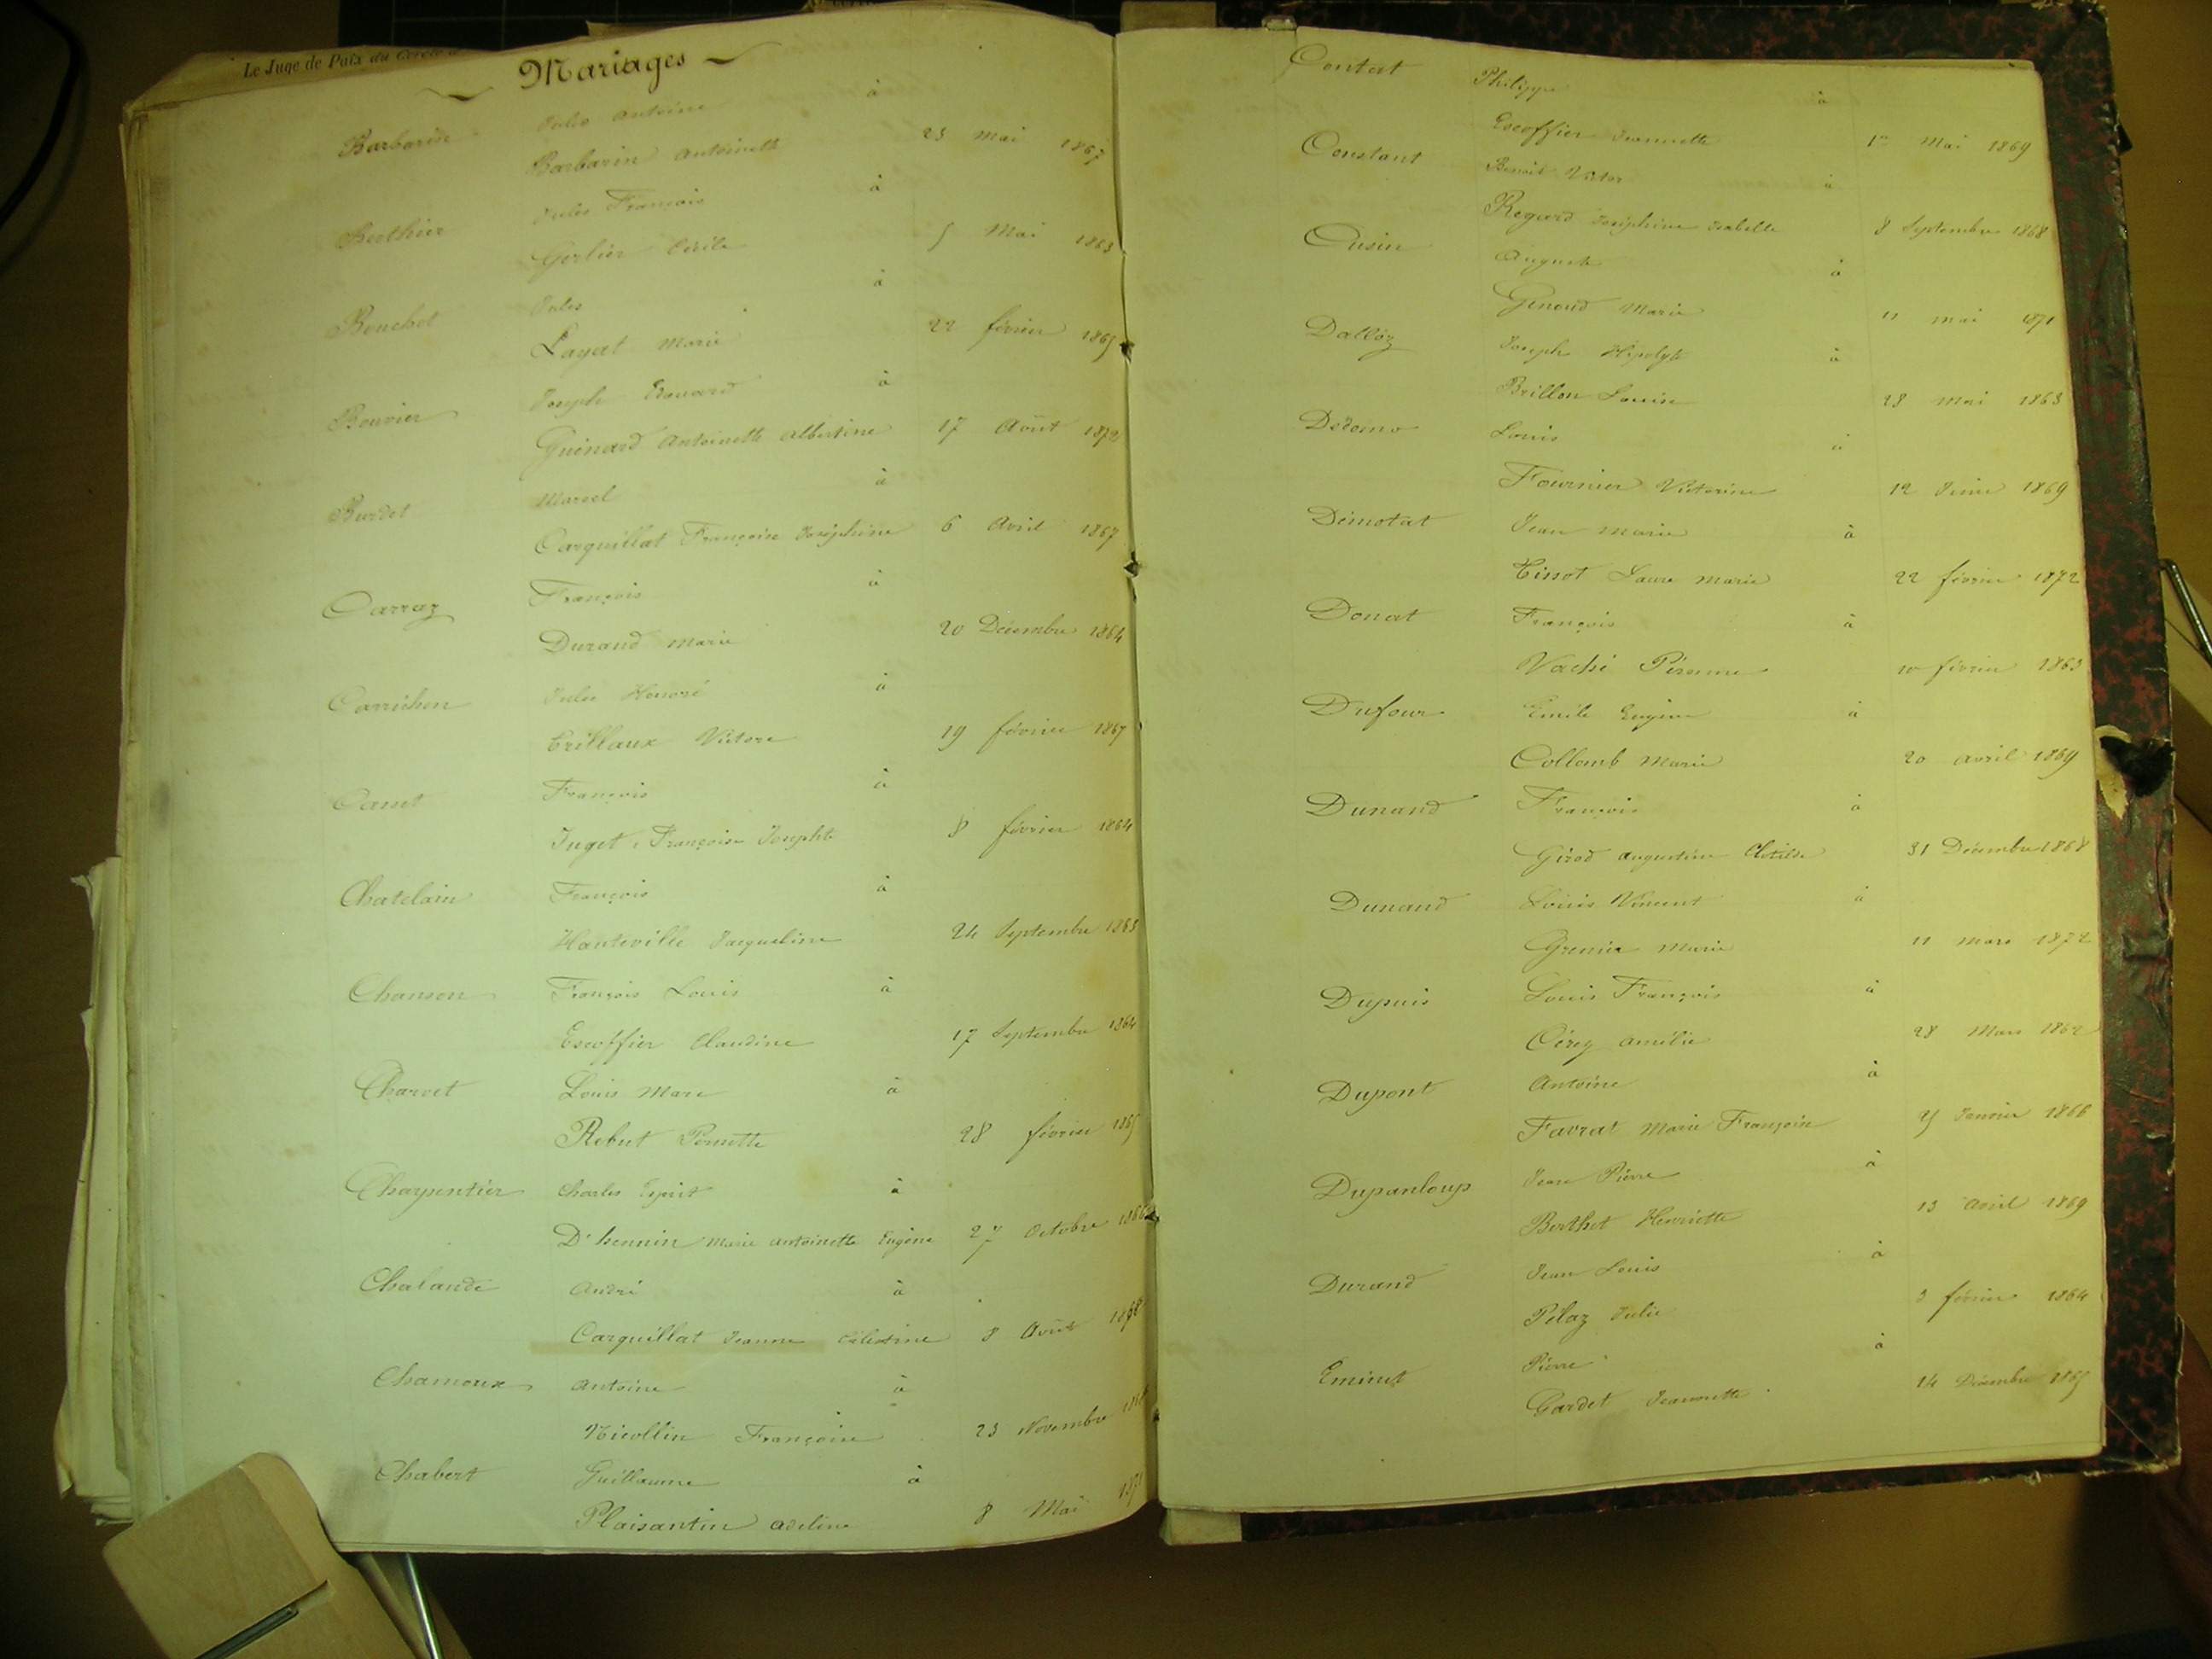 Le Juge de Paix du Cercle
Mariages
Barbarin Jules Antoine à
Barbarin Antoinette 23 Mai 1867
Berthier Jules François à
Gerlier Cécile 5 Mai 1863
Bouchet Jules à
Layat Marie 22 février 1865
Bouvier Joseph Edouard à
Guénard Antoinette Albertine 17 Août 1872
Burdet Marcel à
Carquillat Françoise Joséphine 6 Avril 1867
Carraz François à
Durand Marie 20 Décembre 1864
Carrichon Jules Honoré à
Trillaux Victore 19 février 1867
Carret François à
Juget Françoise Josephte 8 février 1864
Chatelain François à
Hauteville Jacqueline 24 Septembre 1863
Chanson François Louis à
Escoffier Claudine 17 Septembre 1864
Charvet Louis Marc à
Rebut Pernette 28 février 1865
Charpentier Charles Esprit à
D'hennin Marie Antoinette Eugène 27 Octobre
Chalande André à
Carquillat Jeanne Célestine 8 Août 1868
Chamoux Antoine à
Nicollin Françoise 23 Novembre
Chabert Guillaume à
Plaisantin Adeline 8 Mai
Contat Philippe à
Escoffier Jeannette 1er Mai 1869
Constant Benoit Victor à
Regard Joséphine Isabelle 8 Septembre 1868
Cusin Auguste à
Genoud Marie 11 Mai 1871
Dalloz Joseph Hipolyte à
Brillon Louise 28 Mai 1863
Dédomo Louis à
Fournier Victorine 12 Juin 1869
Démotat Jean Marie à
Tissot Laure Marie 22 février 1872
Donat François à
Vaché Péronne 10 février 1863
Dufour Emile Eugène à
Collomb Marie 20 Avril 1869
Dunand François à
Girod Augustine Clotilde 31 Décembre 1868
Dunand Louis Vincent à
Grenier Marie 11 Mars 1872
Dupuis Louis François à
Cérez Amélie 28 Mars 1862
Dupont Antoine à
Favrat Marie Françoise 25 Janvier 1866
Dupanloup Jean Pierre à
Berthet Henriette 13 Avril 1869
Durand Jean Louis à
Pélaz Julie 3 février 1864
Eminet Pierre à
Gardet Jeannette 14 Décembre 1865